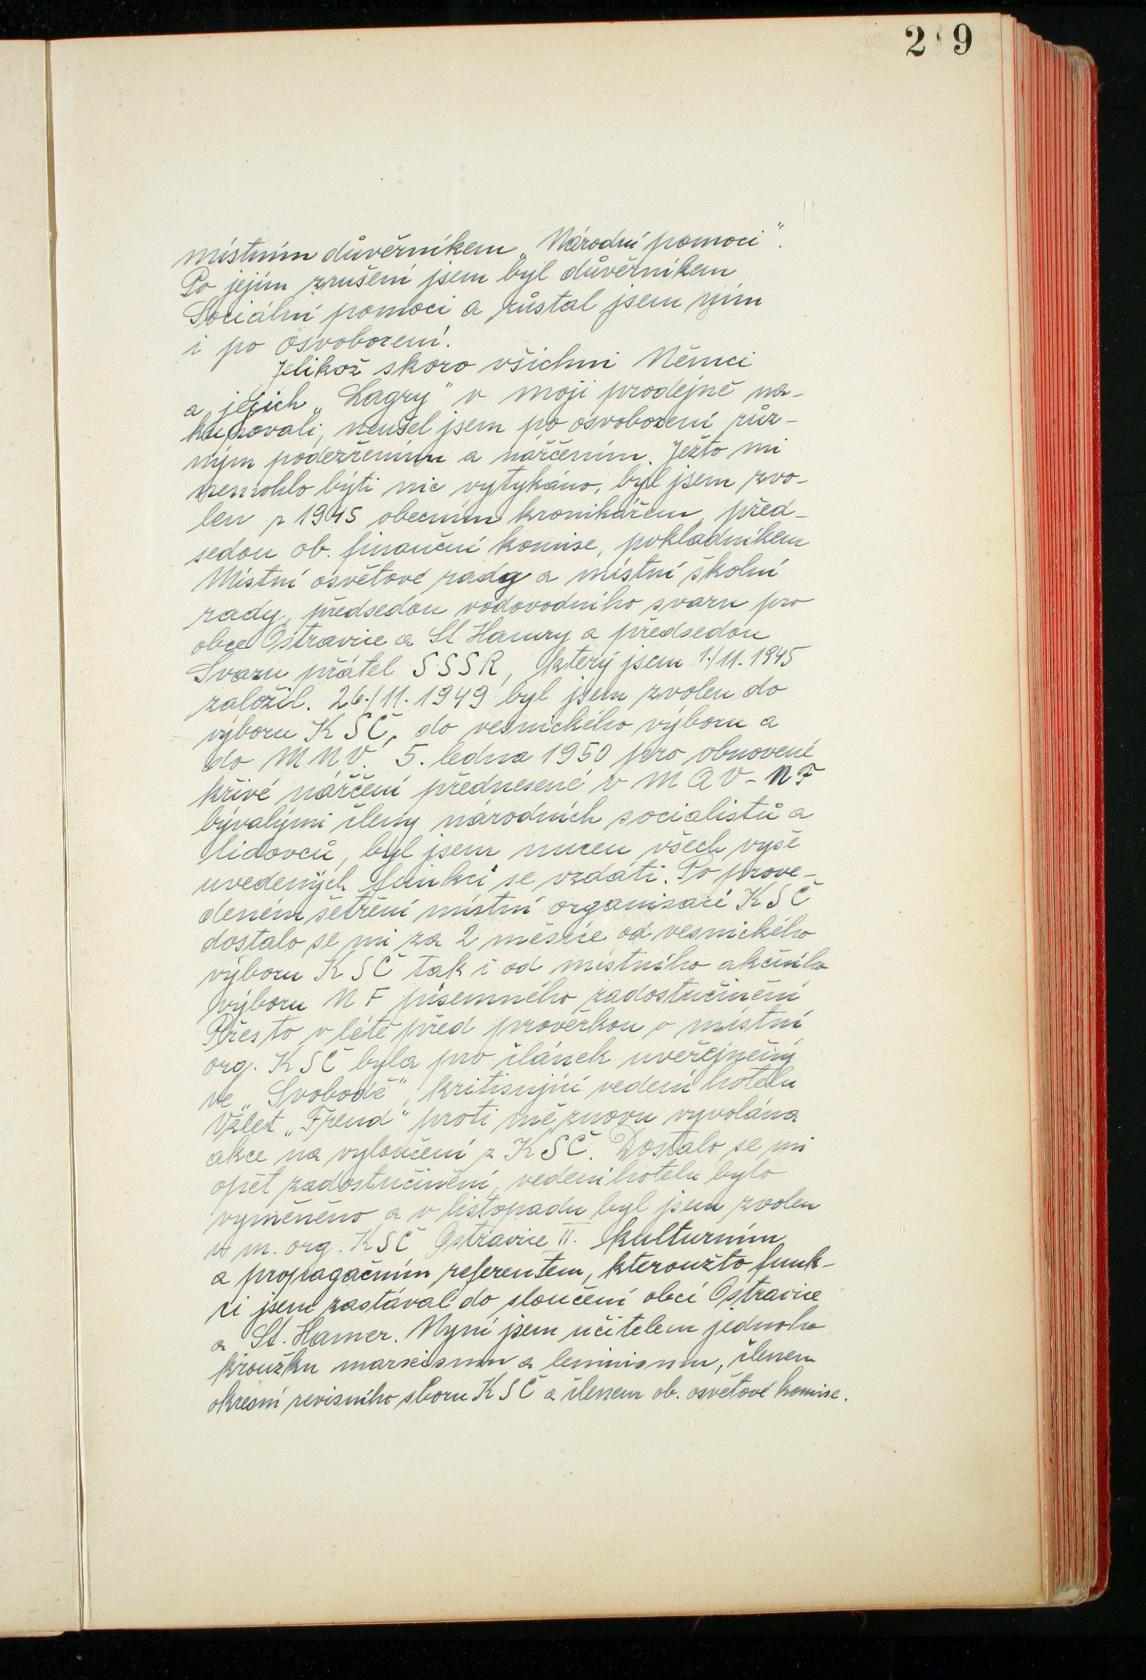 2 9
místním důvěrníkem „Národní pomoci".
Po jejím zrušení jsem byl důvěrníkem
Sociální pomoci a zůstal jsem jím
i po osvobození.
Jelikož skoro všichni Němci
a jejich „Lagry" v moji prodejně na-
kupovali, neušel jsem po osvobození růz-
ným podezřením a nářčením. Ježto mi
nemohlo býti nic vytykáno, byl jsem zvo-
len r 1945 obecním kronikářem, před-
sedou ob. finanční komise, pokladníkem
Místní osvětové rady a místní školní
rady, předsedou vodovodního svazu pro
obce Ostravice a St Hamry a předsedou
Svazu přátel SSSR, který jsem 1./11. 1945
založil. 26./11. 1949 byl jsem zvolen do
výboru KSČ, do vesnického výboru a
do MNV. 5. ledna 1950 pro obnovené
křivé nářčení přednesené v MAV-NF
bývalými členy národních socialistů a
lidovců, byl jsem nucen všech výše
uvedených funkcí se vzdáti. Po prove-
deném šetření místní organisací KSČ
dostalo se mi za 2 měsíce od vesnického
výboru KSČ tak i od místního akčního
výboru NF písemného zadostučinění
Přes to v létě před prověrkou v místní
org. KSČ byla pro článek uveřejněný
ve „Svobodě", kritisující vedení hotelu
Výlet „Freud" proti mě znovu vyvolána
akce na vyloučení z KSČ. Dostalo se mi
opět zadostučinění, vedení hotelu bylo
vyměněno a v listopadu byl jsem zvolen
v m. org. KSČ Ostravice II. kulturním
a propagačním referentem, kteroužto funk-
ci jsem zastával do sloučení obcí Ostravice
a St. Hamer. Nyní jsem učitelem jednoho
kroužku marxismu a leninismu, členem
okresní revisního sboru KSČ a členem ob. osvětové komise.